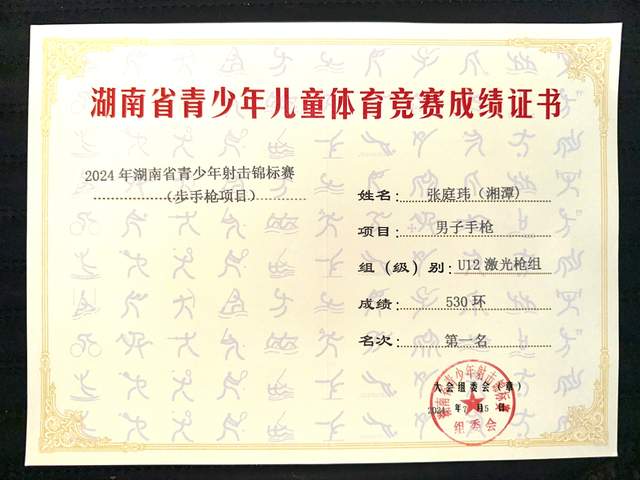 湖南省青少年儿童体育竞赛成绩证书
2024 年湖南省青少年射击锦标赛
（步手枪项目）
姓名： 张庭玮（湘潭）
项目： 男子手枪
组（级）别： U12 激光枪组
成绩： 530 环
名次： 第一名
大会组委会（章）
2024 年 7 月 5 日
湖南省青少年射击锦标赛
组委会